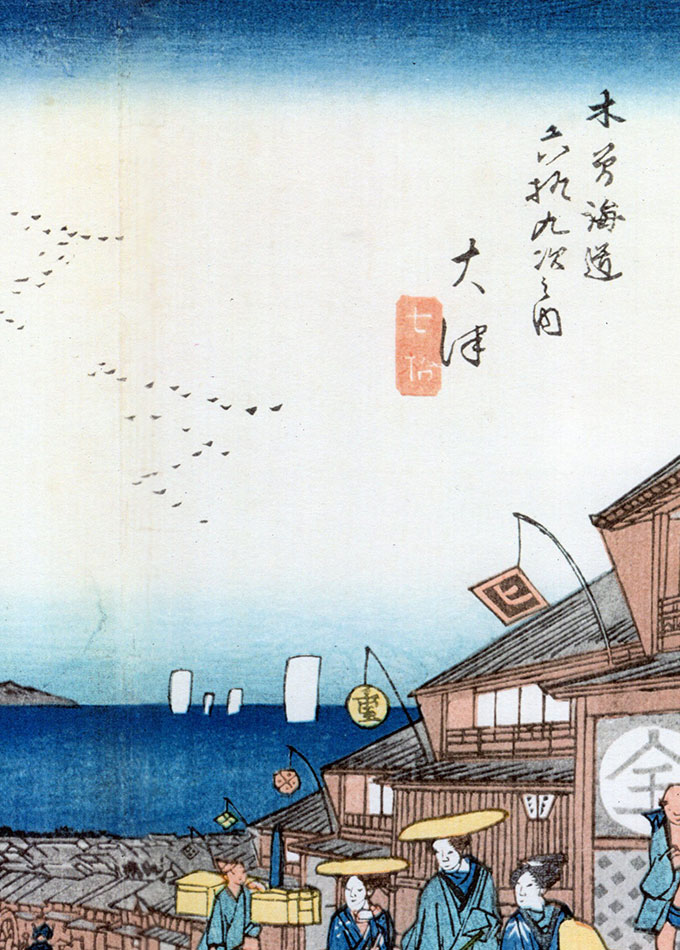 木曽海道
六拾九次之内
大津
七拾
重
全